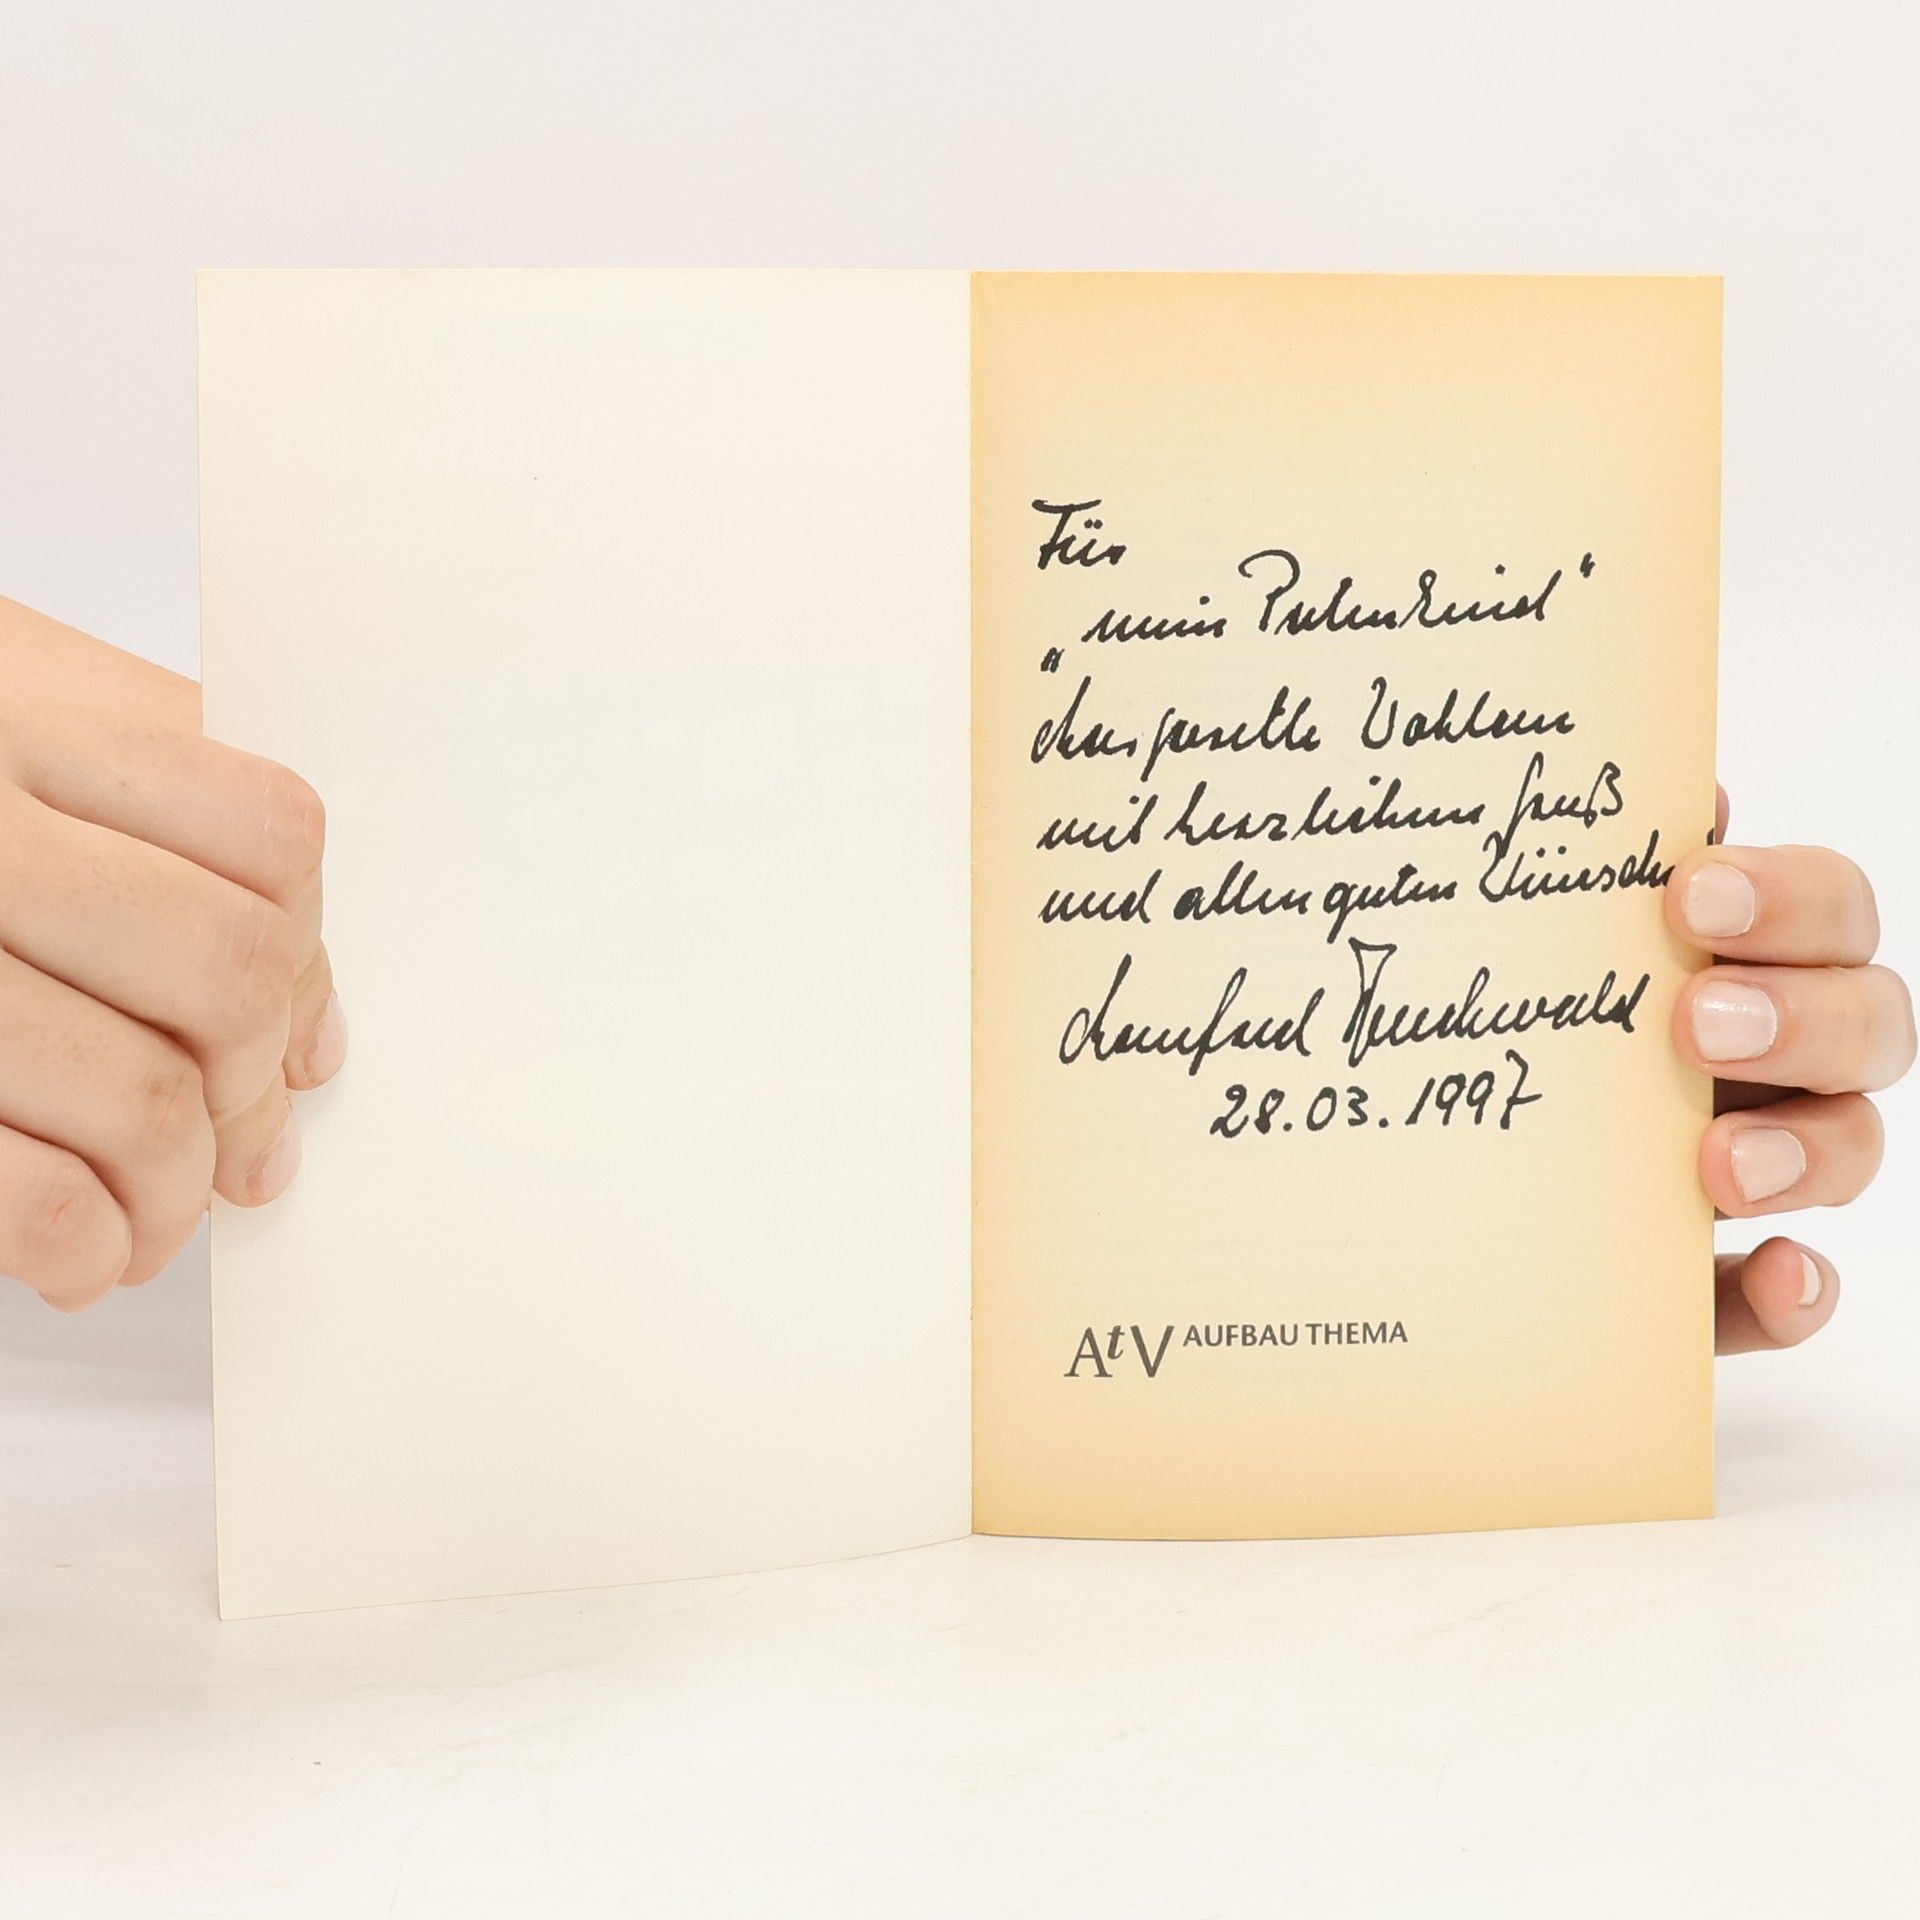 Für
„mein Patenkind“
mit herzlichem Gruß
und allen guten Wünschen
Manfred
28.03.1997
AtV AUFBAU THEMA